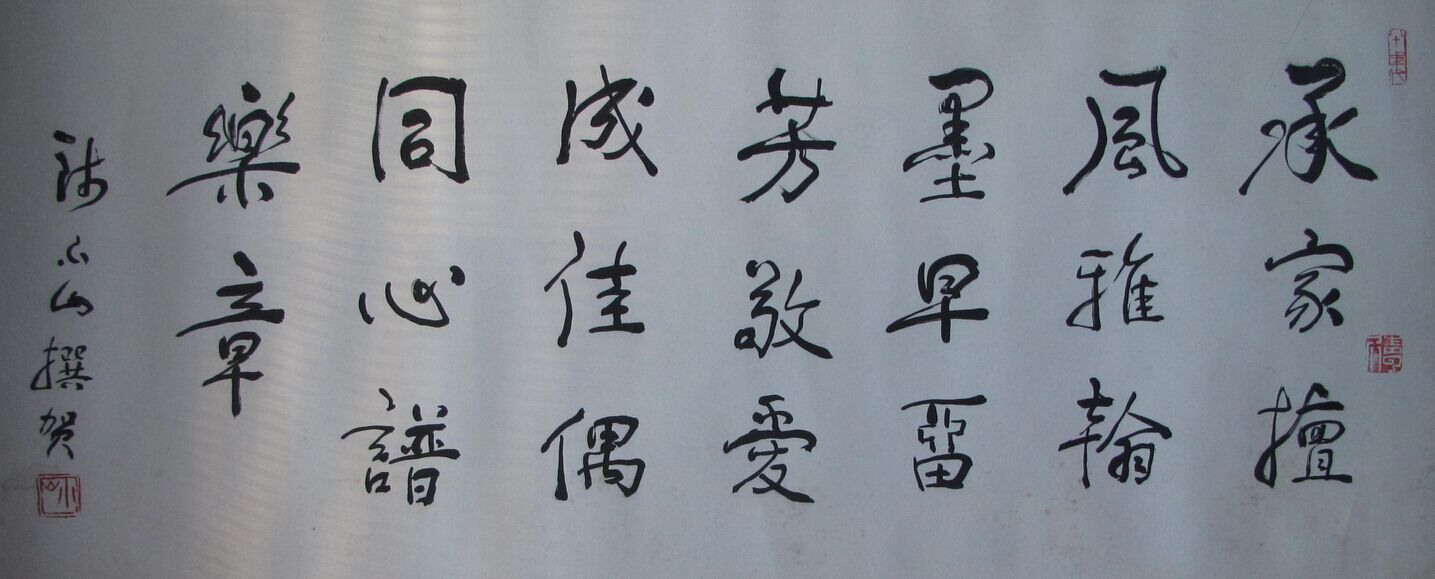 承家擅
風雅翰
墨早畱
芳敬愛
成佳偶
同心譜
樂章
小山撰贺